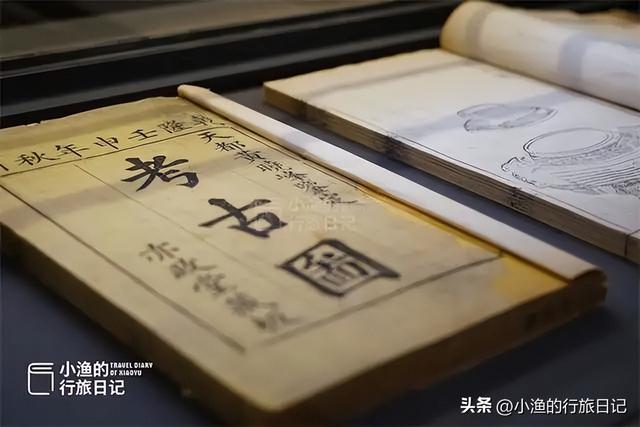 乾隆壬申年秋
天都黄曉峯鑒定
考古圖
亦政堂藏板
小渔的
行旅日记
小渔的
行旅日记
TRAVEL DIARY
OF XIAOYU
头条 @小渔的行旅日记